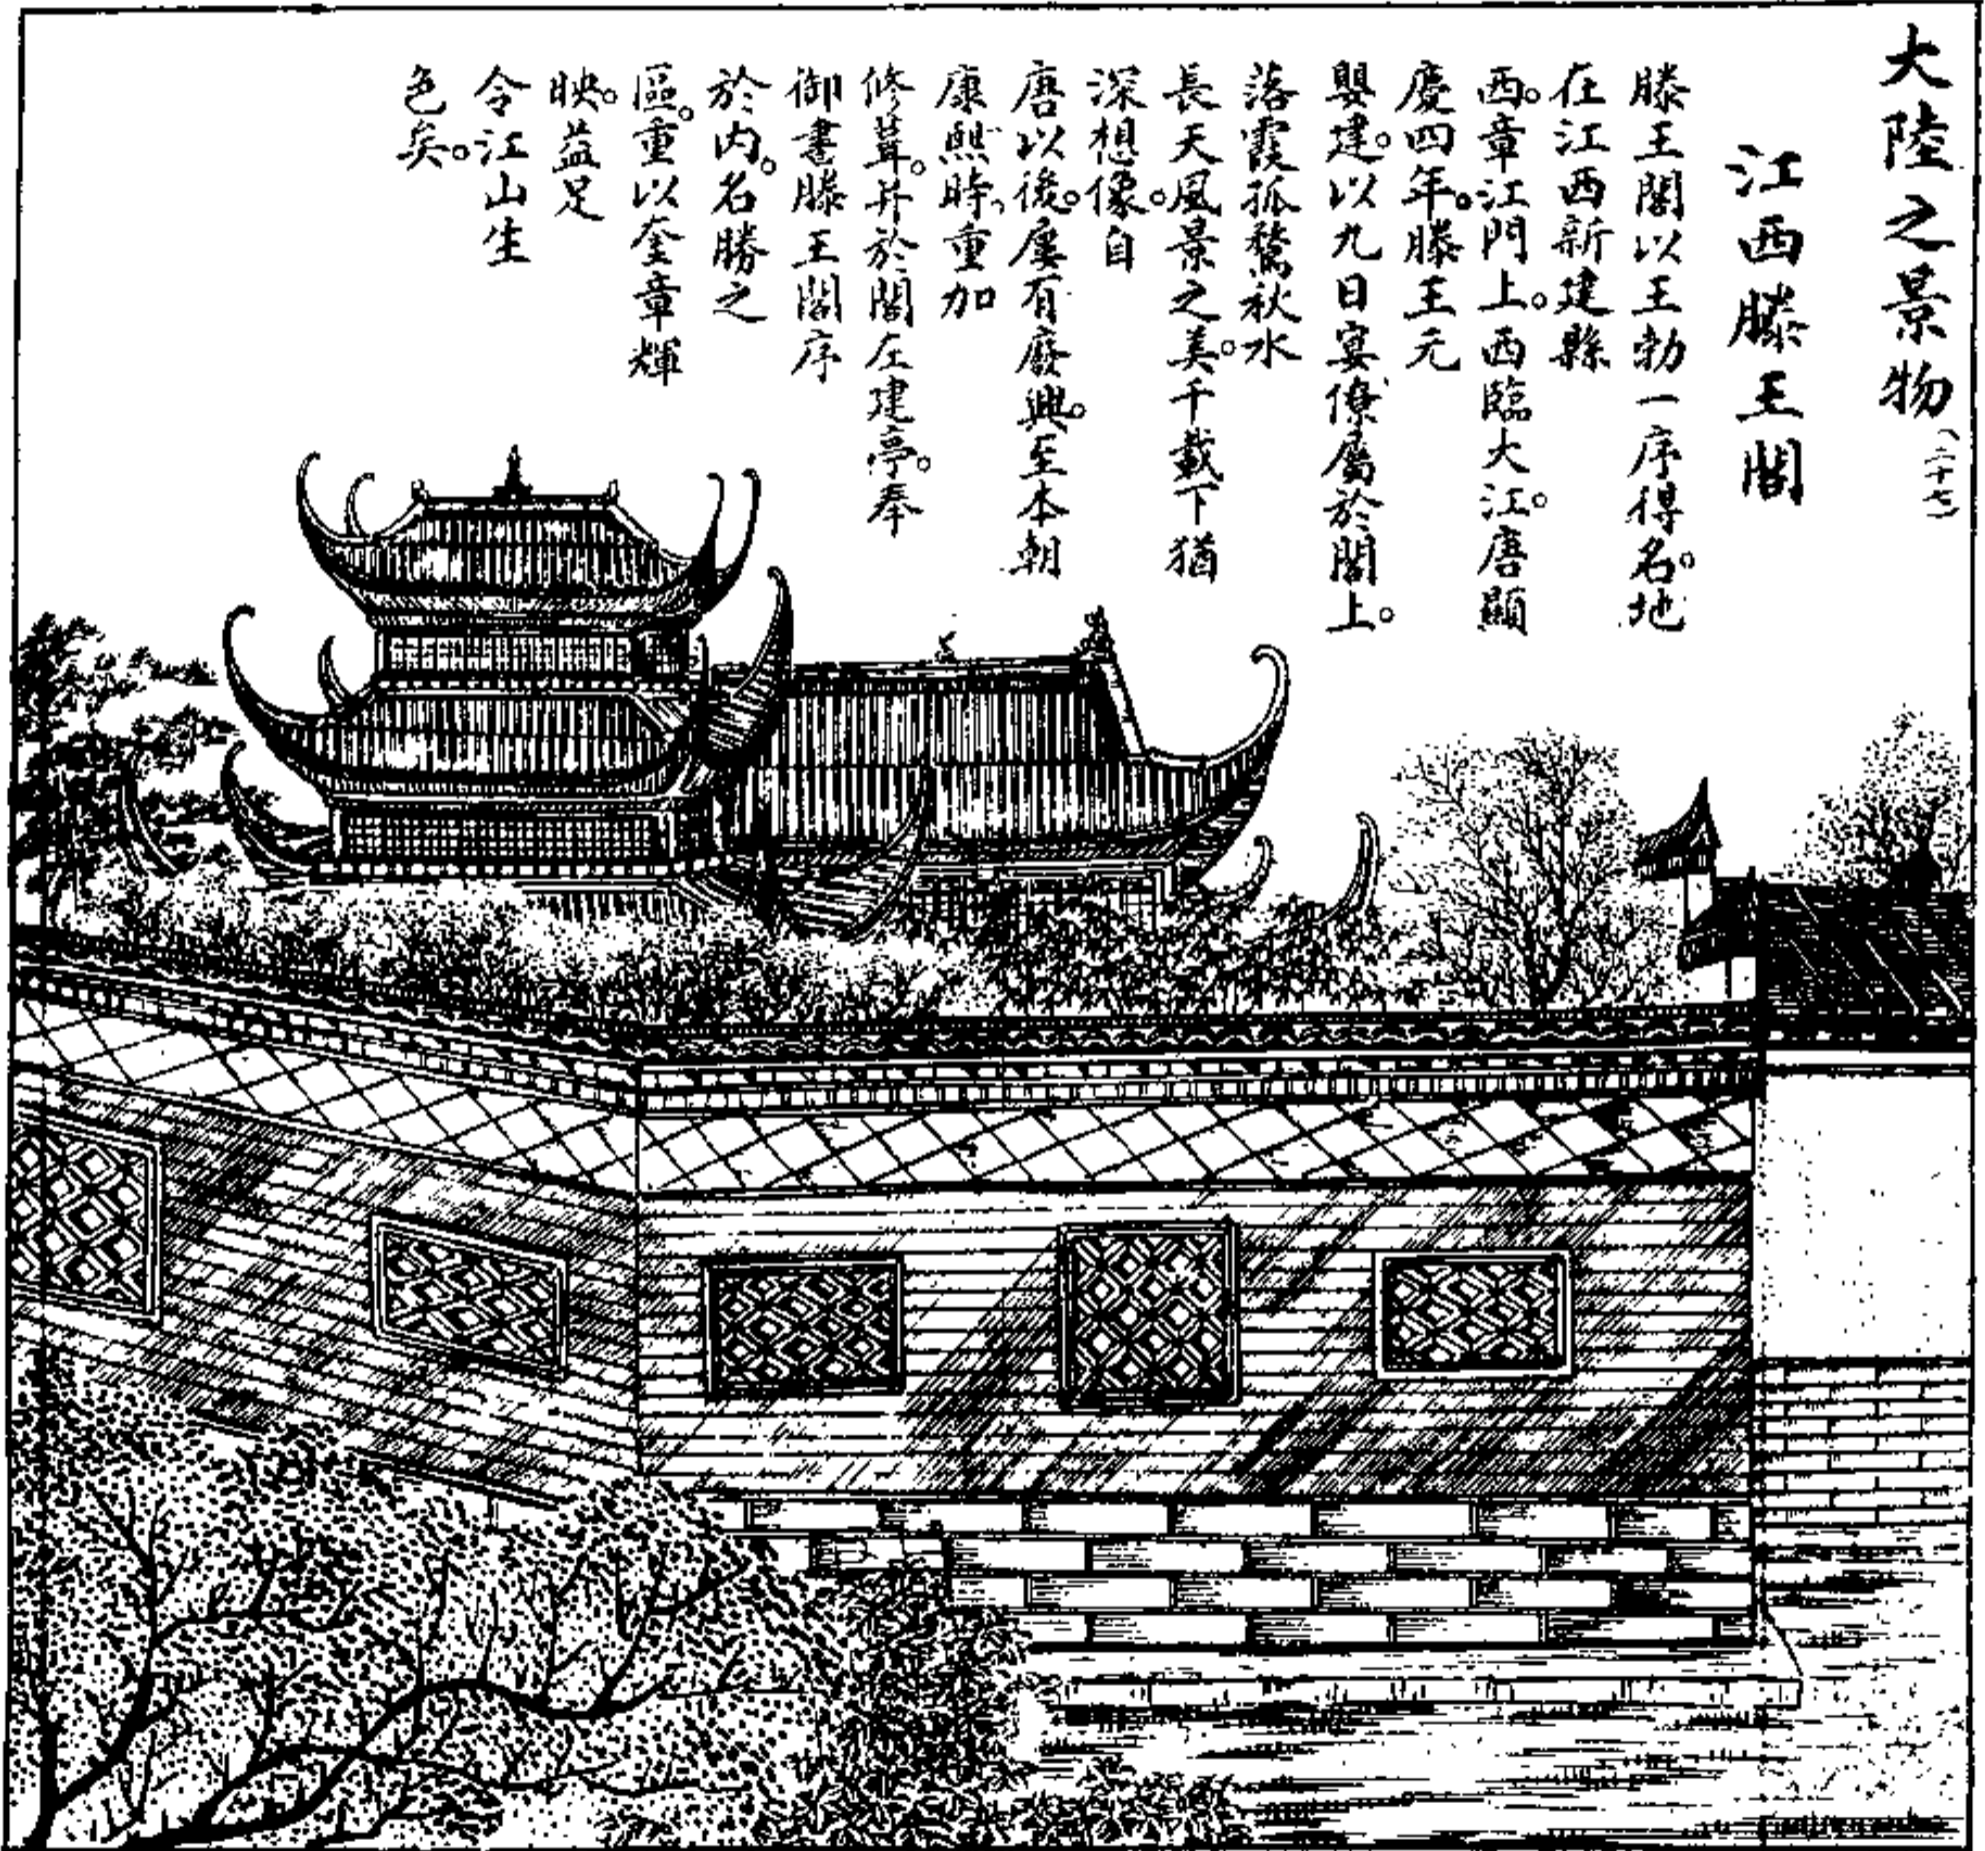 大陸之景物(二十七)
江西滕王閣
滕王閣以王勃一序得名。地
在江西新建縣
西。章江門上。西臨大江。唐顯
慶四年。滕王元
嬰建。以九日宴僚屬於閣上。
落霞孤鶩秋水
長天風景之美。千載下猶
深想像。自
唐以後。屢有廢興。至本朝
康熙時、重加
修葺。并於閣左建亭。奉
御書滕王閣序
於內。名勝之
區。重以奎章輝
映。益足
令江山生
色矣。